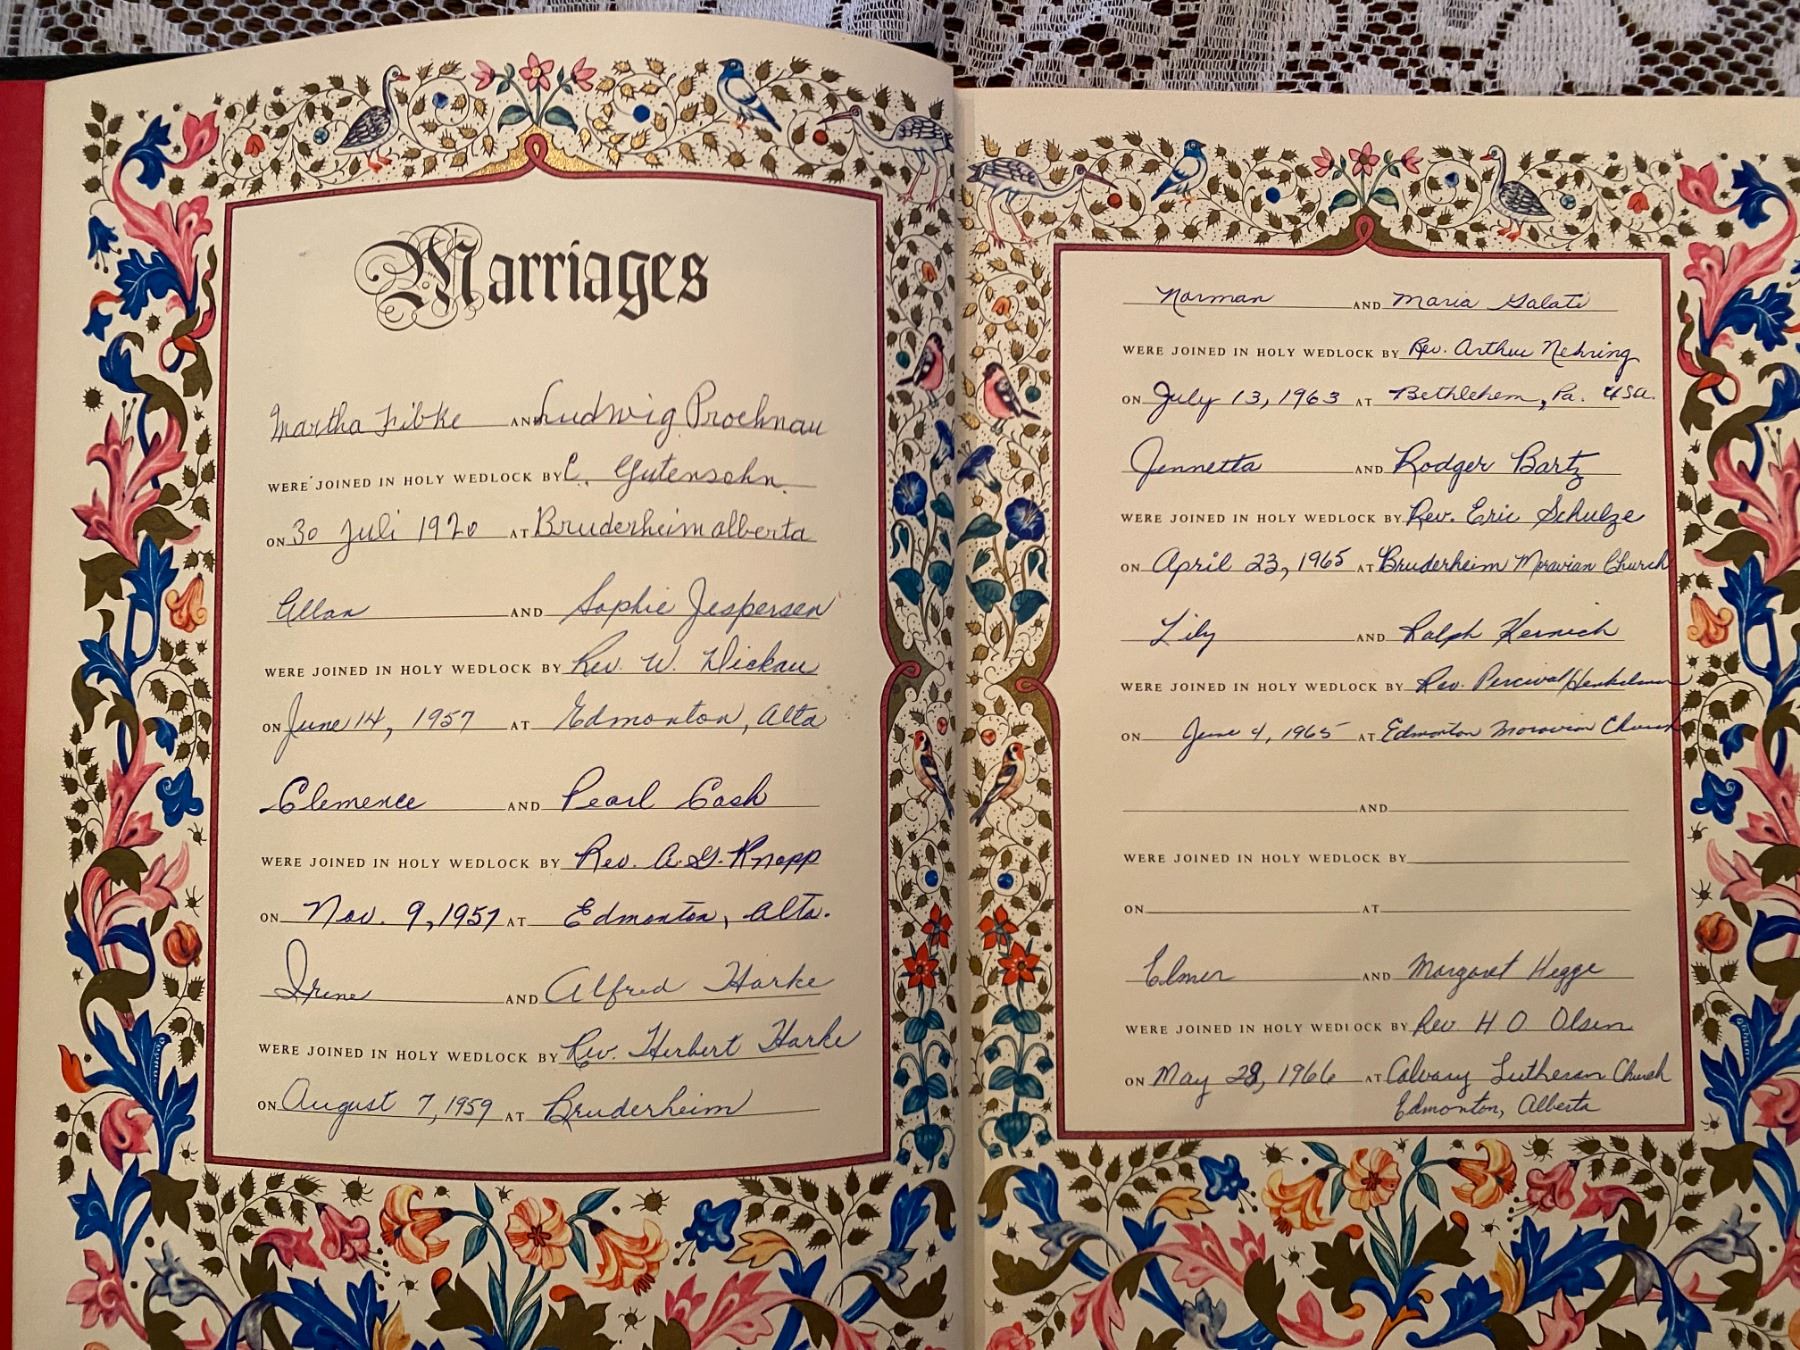 Marriages
Martha Fibke AND Ludwig Prochnau
WERE JOINED IN HOLY WEDLOCK BY C. Gutensohn.
ON 30 Juli 1920 AT Bruderheim alberta
Allan AND Sophie Jespersen
WERE JOINED IN HOLY WEDLOCK BY Rev. W. Dickau
ON June 14, 1957 AT Edmonton, Alta
Clemence AND Pearl Cash
WERE JOINED IN HOLY WEDLOCK BY Rev. A.G. Knopp
ON Nov. 9, 1957 AT Edmonton, Alta.
Irene AND Alfred Harke
WERE JOINED IN HOLY WEDLOCK BY Rev. Herbert Harke
ON August 7, 1959 AT Bruderheim
Norman AND Maria Galati
WERE JOINED IN HOLY WEDLOCK BY Rev. Arthur Nehring
ON July 13, 1963 AT Bethlehem, Pa. USA.
Jennetta AND Rodger Bartz
WERE JOINED IN HOLY WEDLOCK BY Rev. Eric Schulze
ON April 23, 1965 AT Bruderheim Moravian Church
Lily AND Ralph Kernich
WERE JOINED IN HOLY WEDLOCK BY Rev. Percival Henkelman
ON June 4, 1965 AT Edmonton Moravian Church
AND
WERE JOINED IN HOLY WEDLOCK BY
ON AT
Elmer AND Margaret Hegge
WERE JOINED IN HOLY WEDLOCK BY Rev. H O Olsen
ON May 28, 1966 AT Calvary Lutheran Church
Edmonton, Alberta